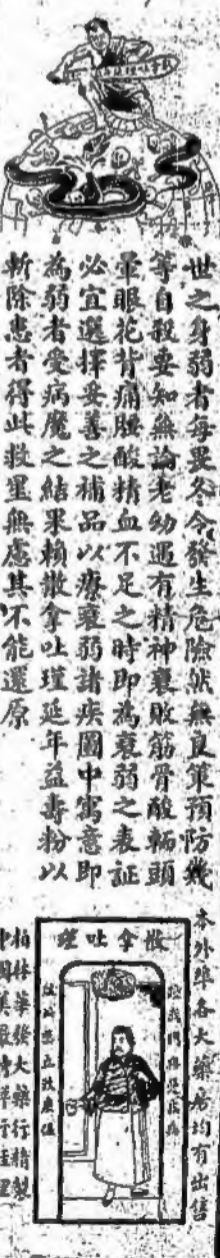 世之身弱者每畏冬令發生危險然無良策預防幾
等自殺要知無論老幼遇有精神衰敗筋骨酸痛頭
暈眼花背痛腰酸精血不足之時即為衰弱之表証
必宜選擇妥善之補品以療衰弱諸疾圖中寓意即
為弱者受病魔之結果賴散拿吐瑾延年益壽粉以
斬除患者得此救星無慮其不能還原
本外埠各大藥房均有出售
散拿吐瑾
柏林華發大藥行精製